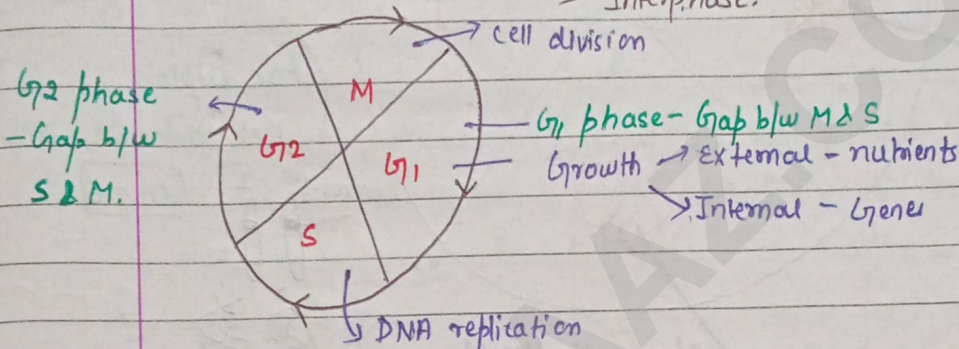 Interphase.
cell division
M
G2 phase
- Gap b/w
S & M.
G2
G1
G1 phase - Gap b/w M & S
Growth → External - nutrients
Internal - Genes
S
DNA replication